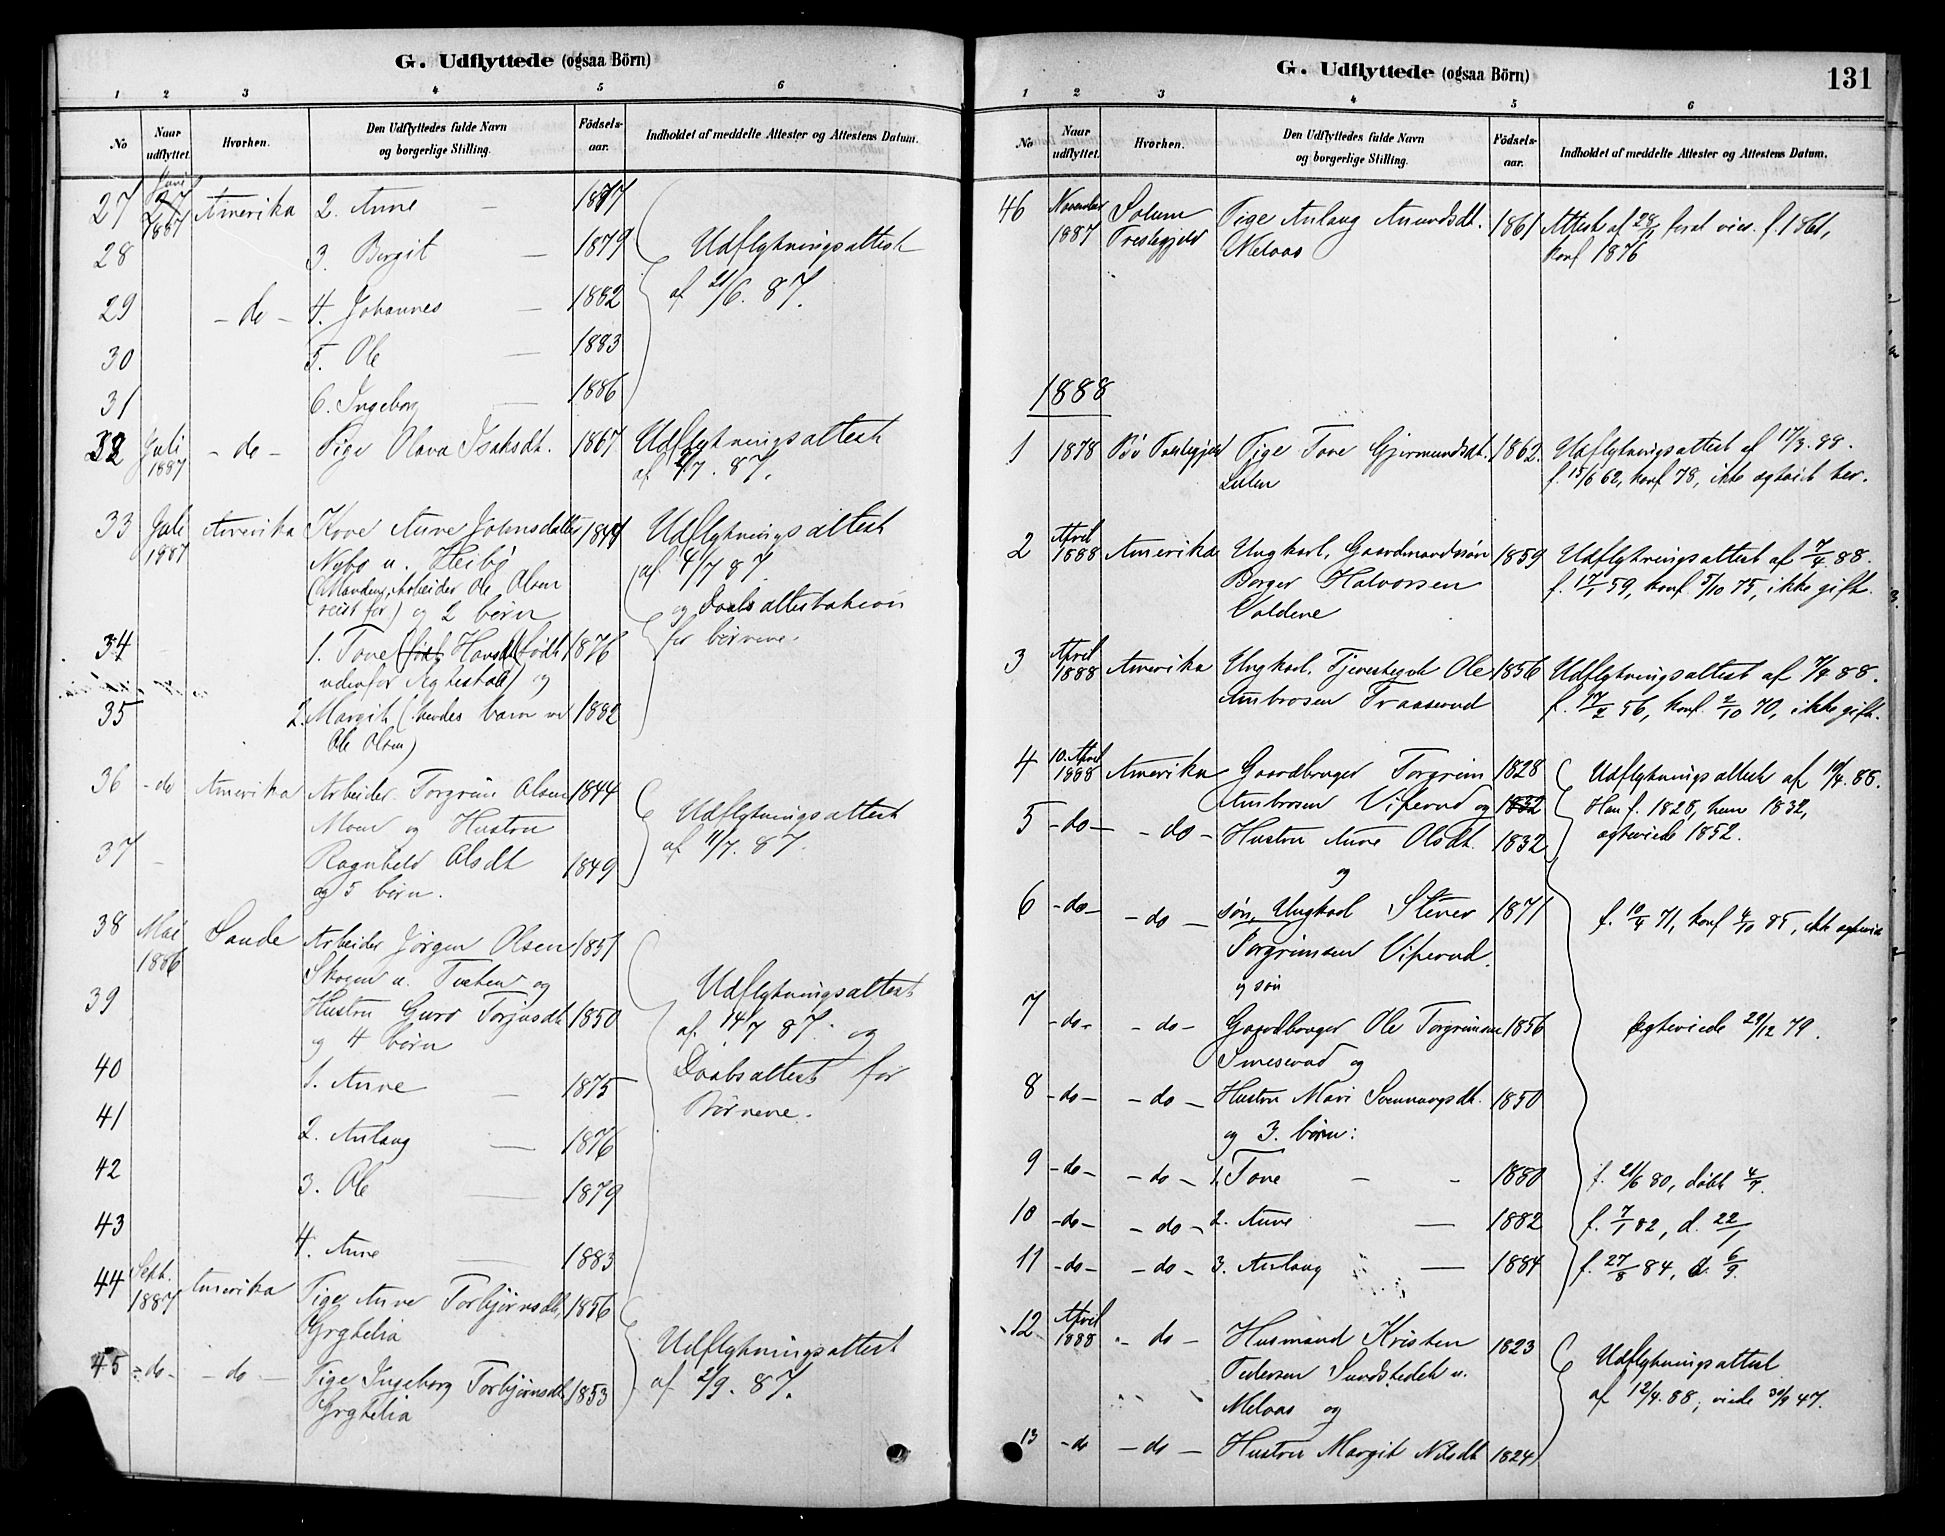 G. Udflyttede (ogsaa Börn)
1 2 3 4 5 6
No
Naar udflyttet.
Hvorhen.
Den Udflyttedes fulde Navn
og borgerlige Stilling.
Födsels-
aar.
Indholdet af meddelte Attester og Attestens Datum.
27 1887 Amerika 2. Anne — 1877
28 3. Borgit — 1879 Udflytningsattest
29 - do - 4. Johannes — 1882 af 21/6. 87.
30 5. Ole — 1883
31 6. Ingeborg — 1886
32 Juli 1887 - do - Pige Olava Isaksdt. 1867 Udflytningsattest
af /7. 87.
33 Juli 1887 Amerika Kone Anne Johnsdatter 1844 Udflytningsattest
Nybø u. Heibø af 4/7 87
(Manden, Arbeider Ole Olsen
reist før) og 2 børn og Daabsattestation
34 1. Tone (født 1876 for børnene.
udenfor Ægteskab) og
35 2. Margit (hendes barn m 1882
Ole Olsen)
36 - do Amerika Arbeider Torgrim Olsen 1844
Moen og Hustru Udflytningsattest
37 - Ragnhild Olsdt 1849 af 11/7. 87.
og 5 børn.
38 Mai 1886 Sande Arbeider Jørgen Olsen 1851
Skoen u. og Udflytningsattest
39 Hustru Guro Torjusdt 1850 af 14/7 87. og
og 4 børn
40 1. Anne — 1875 Daabsattest for
Børnene.
41 2. Aslaug — 1876
42 3. Ole — 1879
43 4. Anne — 1883
44 Sept. 1887 Amerika Pige Anne Torbjørnsdt. 1856
Grgtelia Udflytningsattest
45 - do - - do - Pige Ingeborg Torbjørnsdt. 1853 af 2/9. 87.
Grgtelia
G. Udflyttede (ogsaa Börn)
131
1 2 3 4 5 6
No
Naar udflyttet.
Hvorhen.
Den Udflyttedes fulde Navn
og borgerlige Stilling.
Födsels-
aar.
Indholdet af meddelte Attester og Attestens Datum.
46 November 1887 Solum Præstegjeld Pige Aslaug Amundsdt. 1861 Attest af 28/11 f. 1861,
Meloas konf 1876
1888
1 1878 Bø Præstegjeld Pige Tone Gjermundsdt. 1862. Udflytningsattest af 17/3. 88.
f. 15/6 62, konf 78, ikke ægteviet her.
2 April 1888 Amerika Ungkarl, Gaardmandssøn 1859 Udflytningsattest af 7/4. 88.
Borger Halvorsen f. 17/1 59, konf 3/10 75, ikke gift.
Valdene
3 April 1888 Amerika Ungkarl, Tjenestegut Ole 1856 Udflytningsattest af 7/4 88.
Ambrosen Traaserud f. 17/2 56, konf. 2/10 70, ikke gift.
4 10. April 1888 Amerika Gaardbruger Torgrim 1828 Udflytningsattest af 10/4. 88.
Ambrosen Viperud og 1832 Han f. 1828, hun 1832,
5 - do - - do - Hustru Anne Olsdt. 1832 ægteviede 1852.
og
6 - do - - do - søn, Ungkarl Stener 1871 f. 10/4 71, konf 4/10 85, ikke ægteviet
Torgrimsen Viperud.
og søn
7 - do - - do - Gaardbruger Ole Torgrimsen 1856 Ægteviede 29/12 79.
og
8 - do - - do - Hustru Mari Svennungsdt. 1850
og 3. børn:
9 - do - - do - 1. Tone — - 1880 f. 21/6 80, døbt 4/7.
10 - do - - do - 2. Anne — 1882 f. 7/1 82, d. 22/1
11 - do - - do - 3. Aslaug — 1884 f. 27/8 84, d. 6/9.
12 April 1888 - do - Husmand Kristen 1823 Udflytningsattest
Pedersen Sundstedet u. af 12/4. 88, viede 30/9 47.
Meloas og
13 - do - do - Hustru Margit Nilsdt 1824